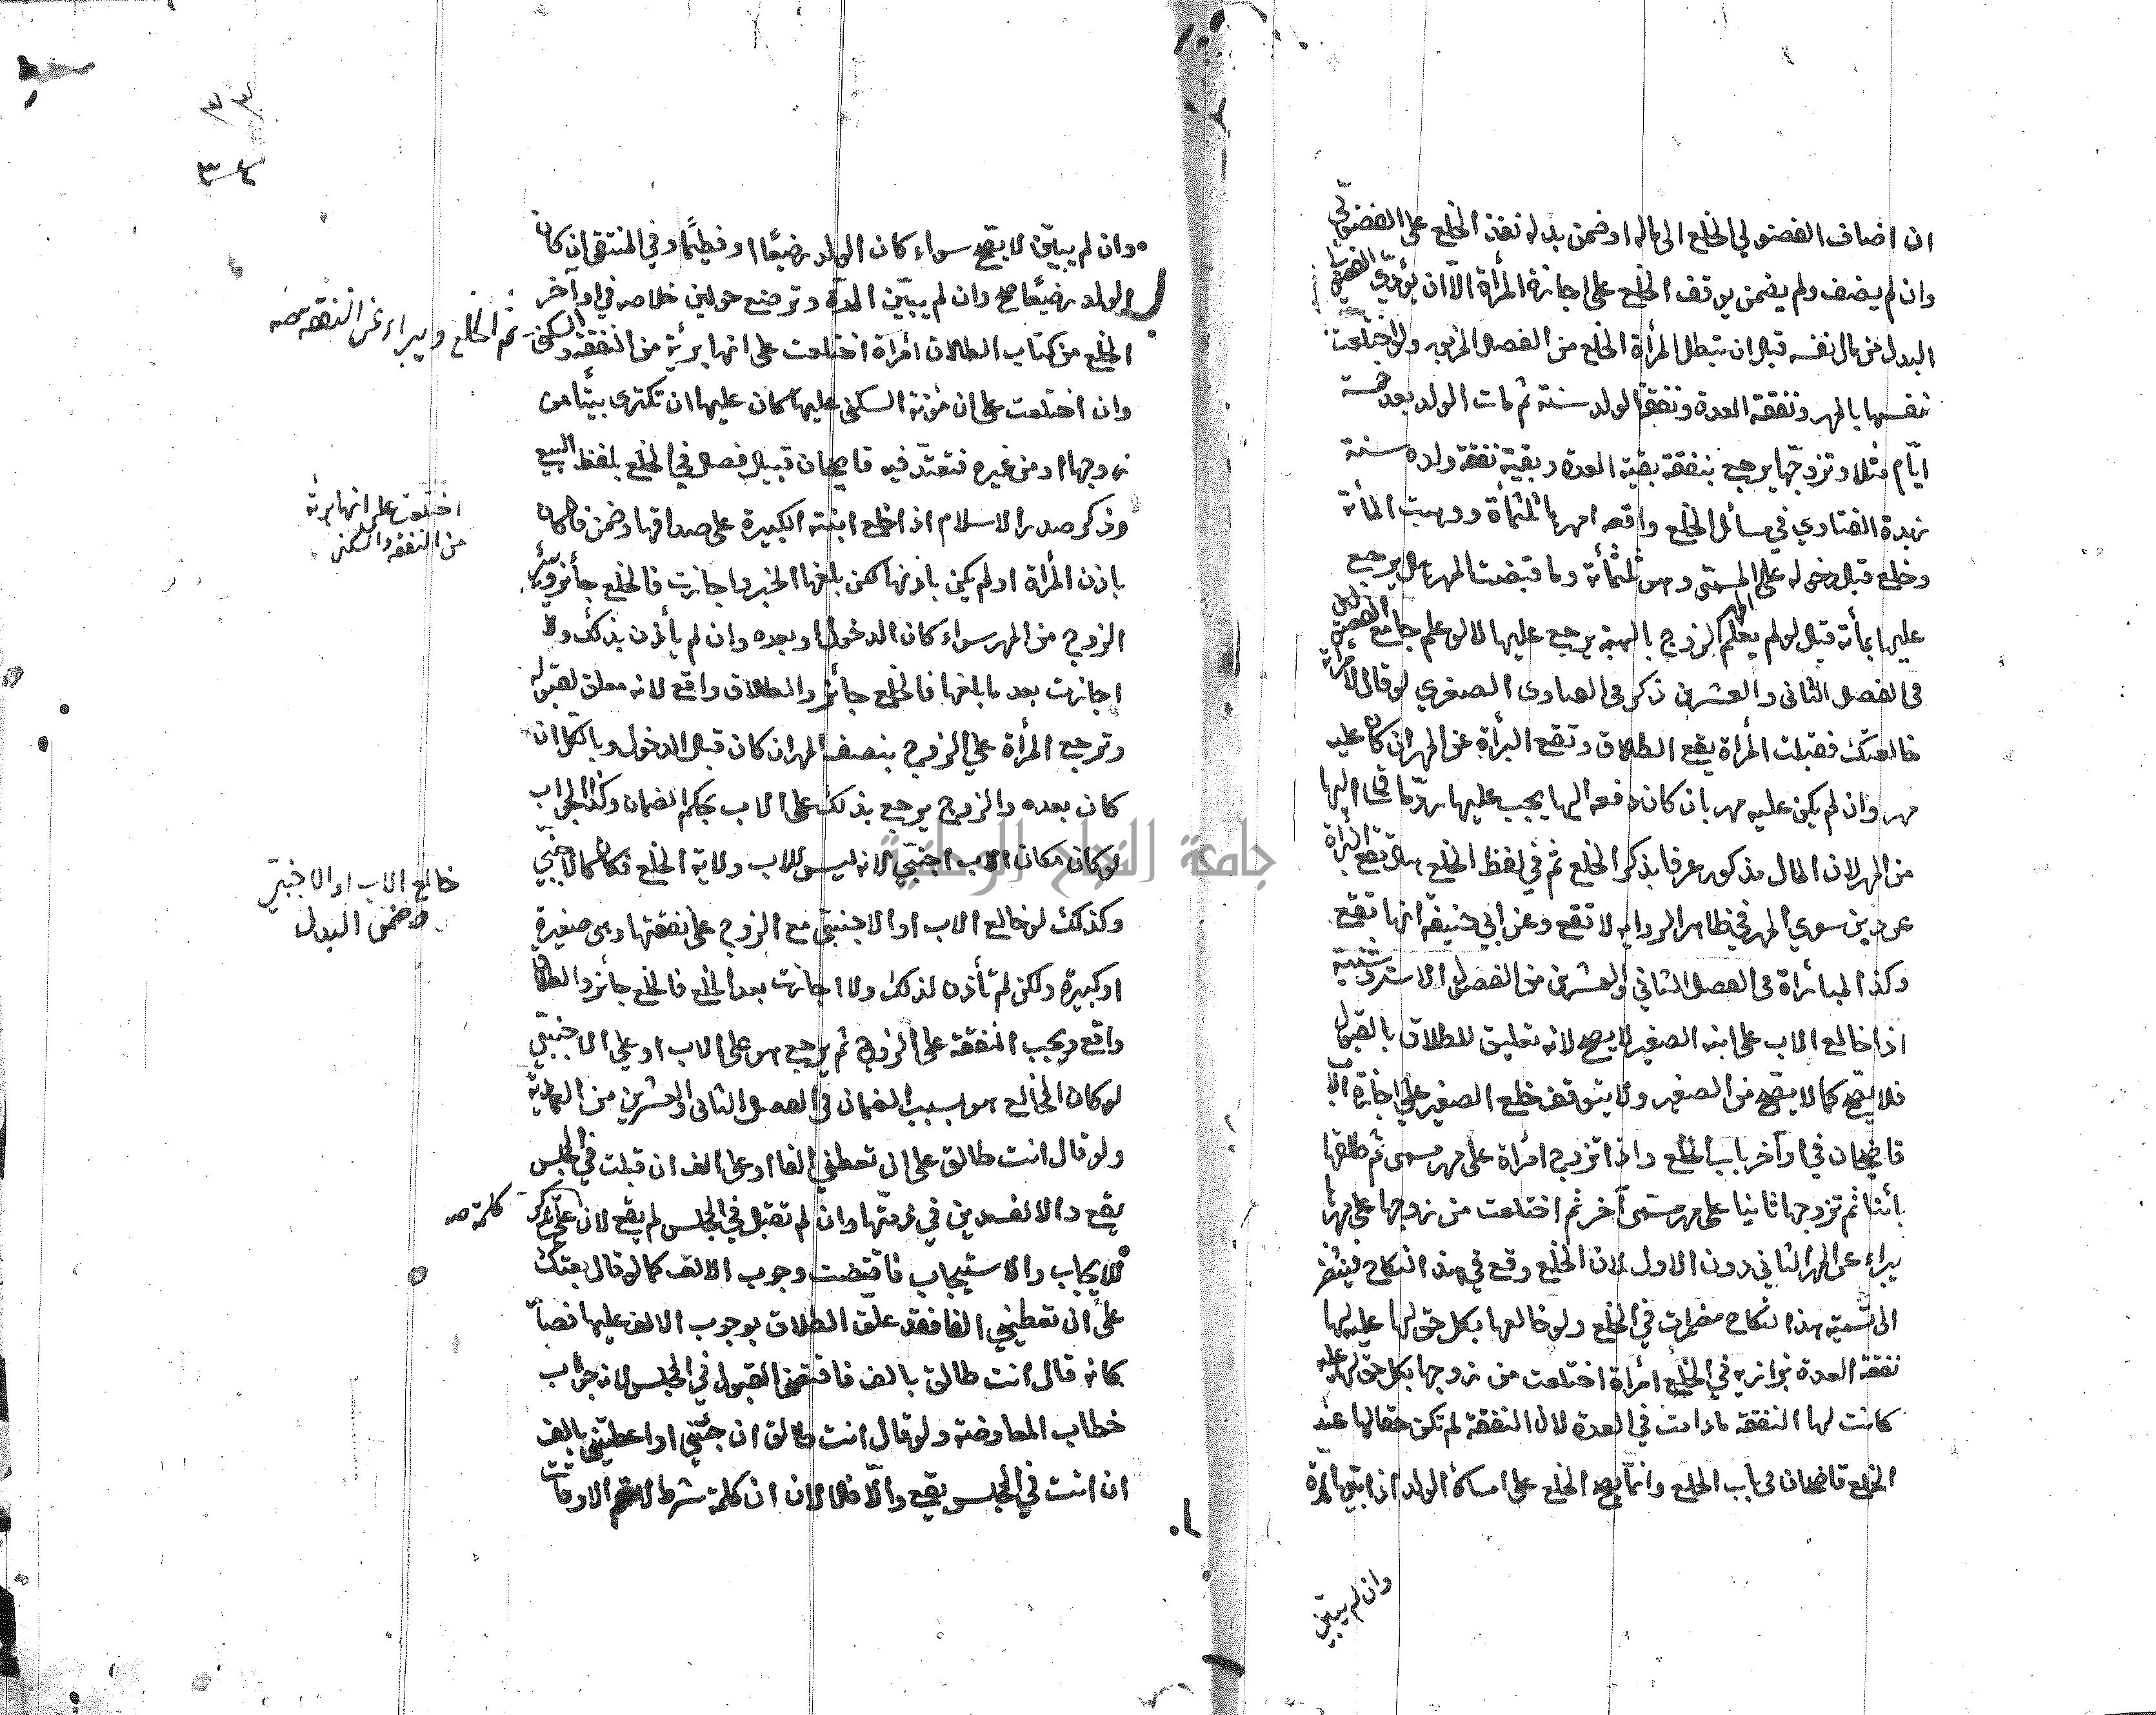 ان اضاف الفضولي الخلع الى ماله او ضمن بدله نفذ الخلع على الفضولي
وان لم يضف ولم يضمن يوقف الخلع على اجازة المرأة الّا ان يؤدّي الفضولي
البدل من مال نفسه قبل ان تبطل المرأة الخلع من الفصل المزبور ولو اختلعت
نفسها بالمهر ونفقة العدة ونفقة الولد سنة ثم مات الولد بعد خمسة
ايّام مثلا وتزوجّها يرجع بنفقة بقية العدة وبقية نفقة ولده سنة
زبدة الفتاوي في مسائل الخلع واقعه امهرها ثلثمأة ووهبت المأة
وخلع قبل دخوله على المسمّى وهو ثلثمأة وما قبضت المهر هل يرجع
عليها بمأة قبل لو لم يعلم الزوج بالهبة يرجع عليها لا لو علم جامع الفصولين
في الفصل الثاني والعشرين ذكر في الفتاوى الصغري لو قال لامرأته
خالعتك فقبلت المرأة يقع الطلاق وتقع البرأة عن المهر ان كان عليه
مهر وان لم يكن عليه مهر بان كان دفعه اليها يجب عليها ردّ ما ساق اليها
من المهر لان المال مذكور عرفا بذكر الخلع ثم في لفظ الخلع هل تقع البرأة
عن دين سوي المهر في ظاهر الرواية لا تقع وعن ابي حنيفة انها تقع
وكذا المبارأة في الفصل الثاني والعشرين من الفصول الاستروشنية
اذا خالع الاب على ابنه الصغير لا يصح لانه تعليق للطلاق بالقبول
فلا يصّح كما لا يصّح من الصغير ولا يتوقف خلع الصغير على اجازة الاب
قاضيخان في اوآخر باب الخلع واذا تزوج امرأة على مهر مسمى ثم طلقها
بائنا ثم تزوجها ثانيا على مهر مسمّى آخر ثم اختلعت من زوجها على مهرها
يبراء عن المهر الثاني دون الاول لان الخلع وقع في هذا النكاح فينصرف
الى تسمية هذا النكاح مضمرات في الخلع ولو خالعها بكل حق لها عليه لها
نفقة العدة بزازيه في الخلع امرأة اختلعت من زوجها بكل حق لها عليه
كانت لها النفقة ما دامت في العدة لان النفقة لم تكن حقا لها عند
الخلع قاضيخان في باب الخلع وانّما يصح الخلع على امساك الولد اذا بيّن المدّة
وان لم يبيّن
٣٣
٣٤
وان لم يبيّن لا يصّح سواء كان الولد رضيعًا او فطيمًا وفي المنتقى ان كان
الولد رضيعًا صح وان لم يبيّن المدّة وترضع حولين خلاصه في اوآخر
الخلع من كتاب الطلاق امرأة اختلعت على انها بريّة من النفقة والسكنى
تم الخلع ويبراء عن النفقه صح
وان اختلعت على ان مؤنة السكنى عليها كان عليها ان تكترى بيتًا من
زوجها او من غيره فتعتدّ فيه قاضيخان قبيل فصل في الخلع بلفظ البيع
اختلعت على انها برئة
من النفقه والسكنى
وذكر صدر الاسلام اذا خلع ابنته الكبيرة على صداقها وضمن فان كان
باذن المرأة او لم يكن باذنها لكن بلغها الخبر واجازت فالخلع جأئز ويبرأ
الزوج من المهر سواء كان الدخول او بعده وان لم يأذن بذلك ولا
اجازت بعد ما بلغها فالخلع جأئز والطلاق واقع لانه معلق بقبوله
وترجع المرأة علي الزوج بنصف المهر ان كان قبل الدخول وبالكل ان
كان بعده والزوج يرجع بذلك على الاب بحكم الضمان وكذا الجواب
لو كان مكان الاب اجنبيّ لانه ليس للاب ولاية الخلع فكان كالاجنبيّ
خالع الاب او الاجنبيّ
وضمن البدل
وكذلك لو خالع الاب او الاجنبيّ مع الزوج على نفقتها وهى صغيرة
او كبيرة ولكن لم تأذن لذلك ولا اجازت بعد الخلع فالخلع جأئز والطلاق
واقع ويجب النفقة على الزوج ثم يرجع هو على الاب او علي الاجنبيّ
لو كان الخالع هو بسبب الضمان في الفصل الثانى والعشرين من العماديّة
ولو قال انت طالق على ان تعطيني الفا او على الف ان قبلت في المجلس
يقع والالف دين في ذمتّها وان لم تقبل في المجلس لم يقع لان على تذكر
كلمة صح
للايجاب والاستيجاب فاقتضت وجوب الالف كما لو قال بعتك
على ان تعطيني الفا فقد علّق الطلاق بوجوب الالف عليها نصاً
كانه قال انت طالق بالف فاقتضى القبول في المجلس لانه جواب
خطاب المعاوضة ولو قال انت طالق ان جئتني او اعطيتني بالف
ان اتت في المجلس يقع والّا فلا لان ان كلمة شرط لا تعم الاوقات
جامعة النجاح الوطنية